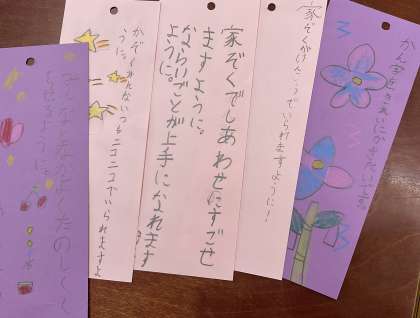 かん字をきれいにかきたいです。
家ぞくがけんこうでいられますように!
家ぞくでしあわせにすごせ
ますように。
ならいごとが上手になれます
ように。
かぞくみんないつもニコニコでいられますよ
うに。
みんななかよくたのしく